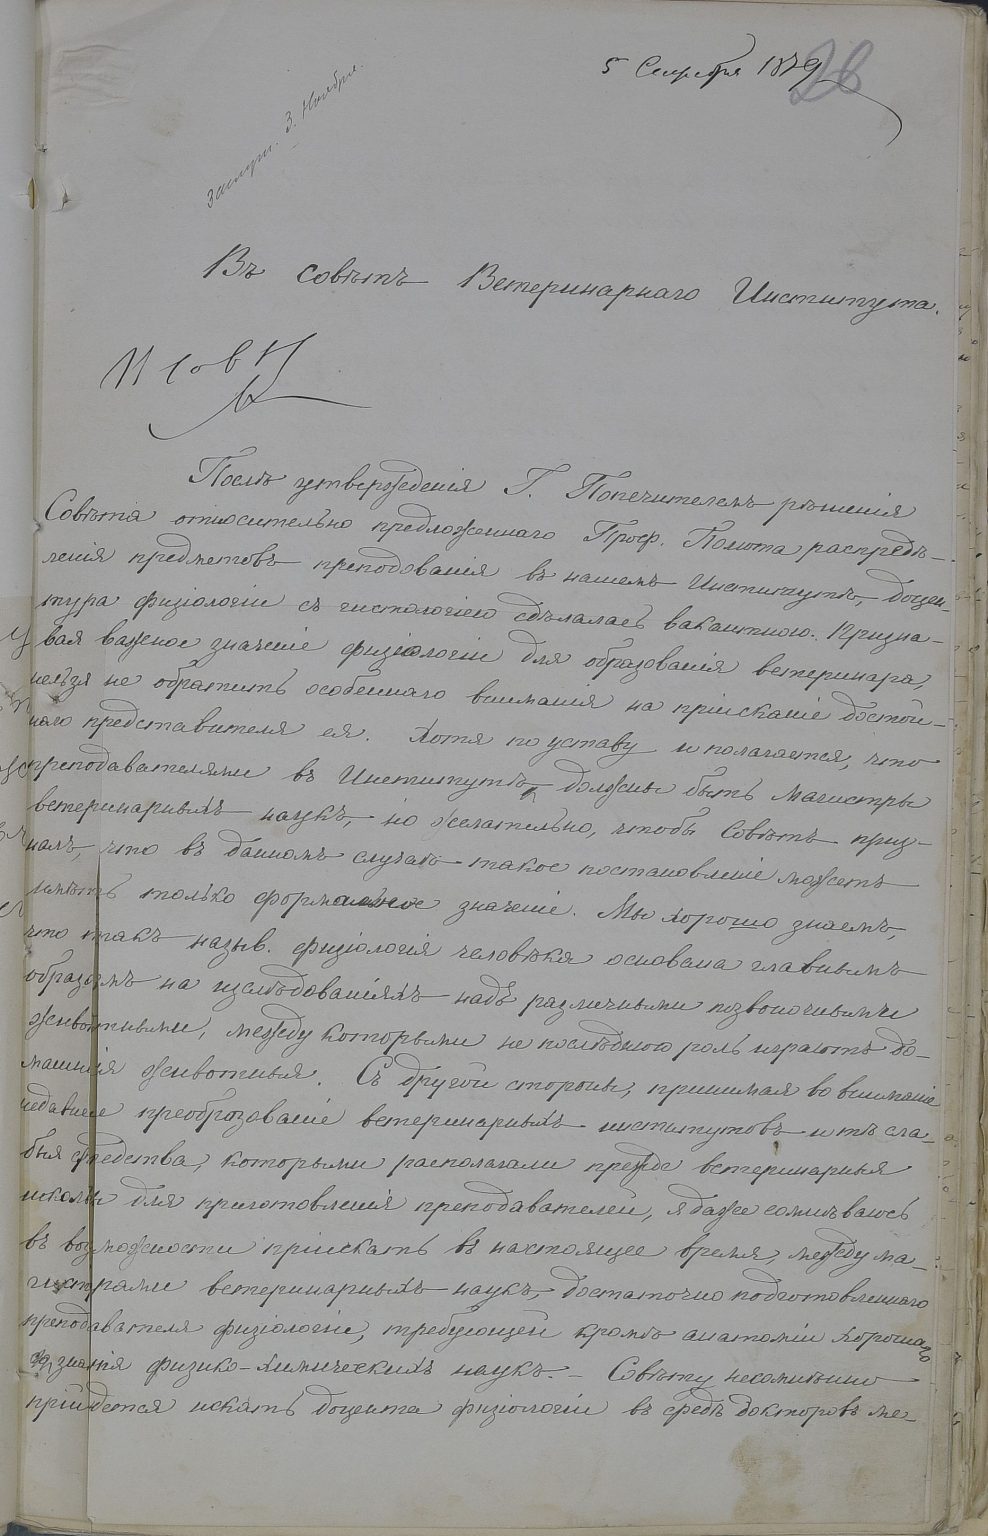 5 Сентября 1879
28
Заслуш. 3. Ноября.
Въ Совѣтъ Ветеринарнаго Института.
Послѣ утвержденія Г. Попечителемъ рѣшенія
Совѣта относительно предложеннаго Проф. Полюта распредѣ-
ленія предметовъ преподованія въ нашемъ Институтѣ, доцен-
тура физіологіи съ гистологіею сдѣлалась вакантною. Призна-
вая важное значеніе физіологіи для образованія ветеринара,
нельзя не обратить особеннаго вниманія на пріисканіе достой-
наго представителя ея. Хотя по уставу и полагается, что
преподавателями въ Институтѣ должны быть магистры
ветеринарныхъ наукъ, но желательно, чтобы Совѣтъ приз-
налъ, что въ данномъ случаѣ такое постановленіе можетъ
имѣть только формальное значеніе. Мы хорошо знаемъ,
что такъ назыв. физіологія человѣка основана главнымъ
образомъ на изслѣдованіяхъ надъ различными позвоночными
животными, между которыми не послѣднюю роль играютъ до-
машнія животныя. Съ другой стороны, принимая во вниманіе
недавнее преобразованіе ветеринарныхъ институтовъ и тѣ сла-
быя средства, которыми располагали прежде ветеринарныя
школы для приготовленія преподавателей, я даже сомнѣваюсь
въ возможности пріискать въ настоящее время, между ма-
гистрами ветеринарныхъ наукъ, достаточно подготовленнаго
преподавателя физіологіи, требующей кромѣ анатоміи хорошаго
знанія физико-химическихъ наукъ. – Совѣту несомнѣнно
прійдется искать доцента физіологіи въ средѣ докторовъ ме-